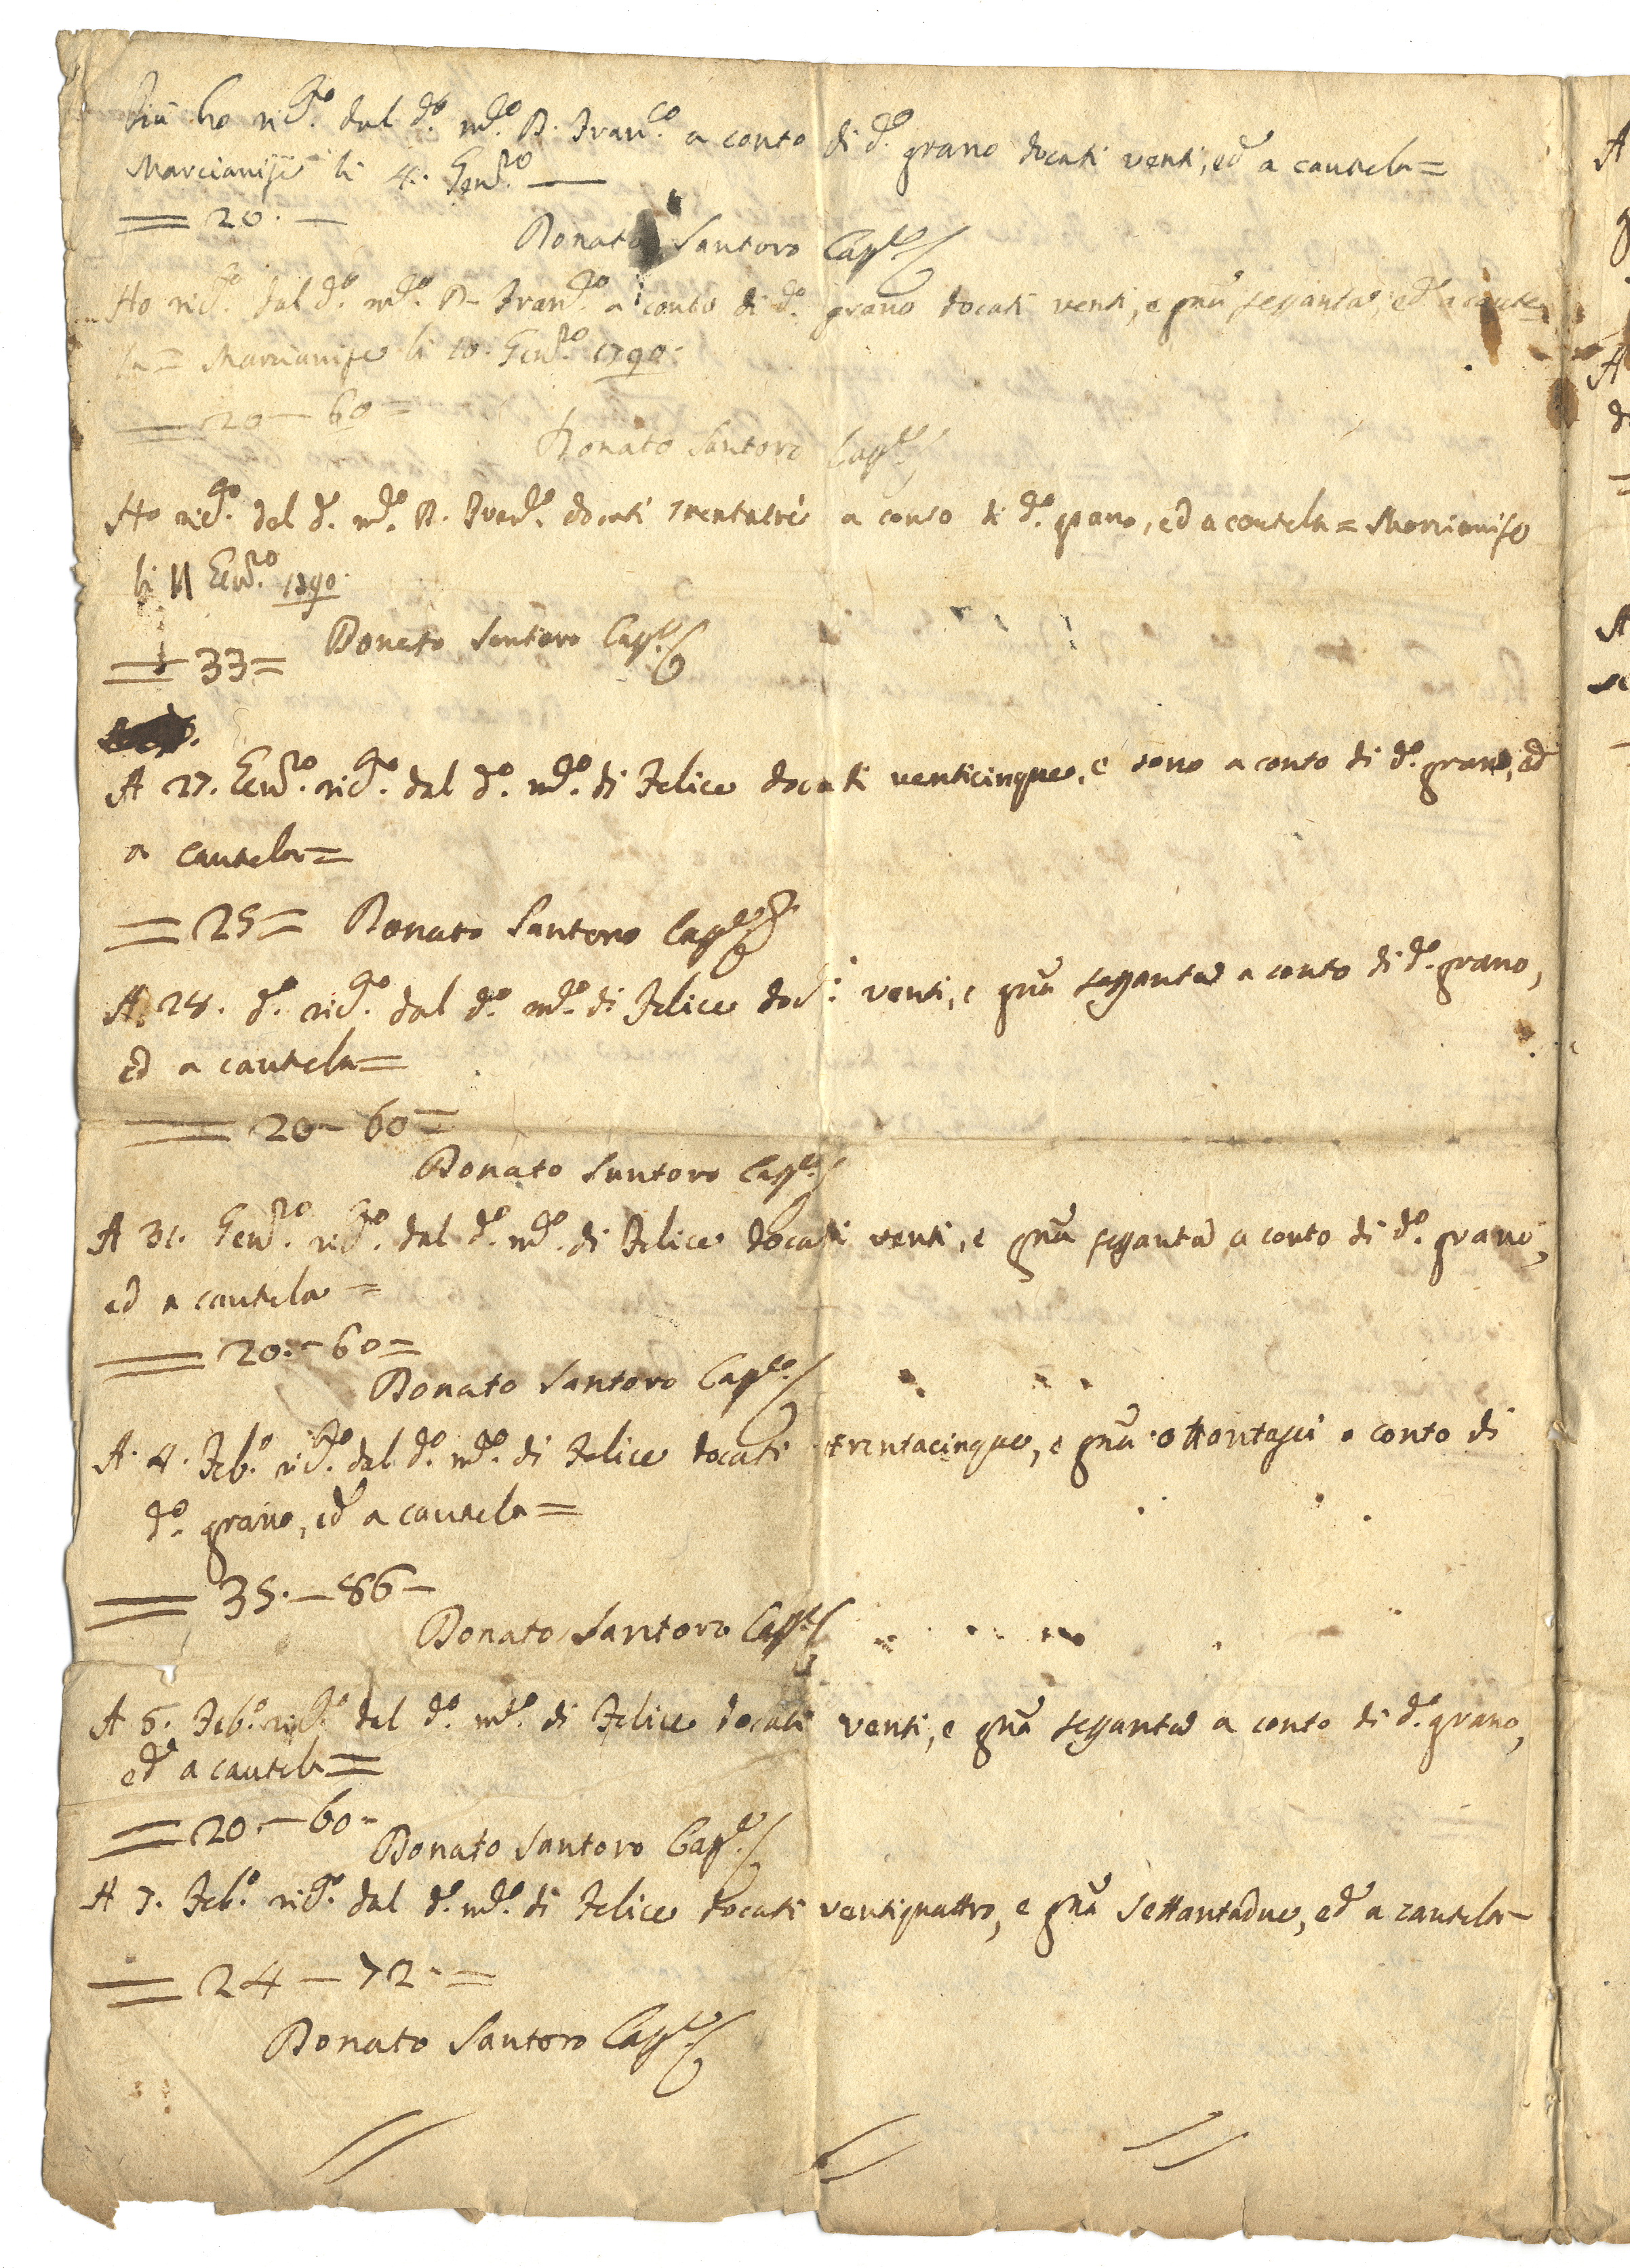 Più ho ric.to dal d.o m.co D. Fran.co a conto di d.o grano docati venti, ed a cautela =
Marcianise li 4. Gen.ro —
= 20. —
Donato Santoro Capp.o
Ho ric.to dal d.o m.co D. Fran.co a conto di d.o grano docati venti, e gnā sessanta, ed a caute
la = Marcianise li 10. Gen.ro 1790.
= 20 — 60 =
Donato Santoro Capp.o
Ho ric.to dal d.o m.co D. Fran.co docati trentatrè a conto di d.o grano, ed a cautela = Marcianise
li 11 Gen.ro 1790.
= 33 =
Donato Santoro Capp.o
A 27. Gen.ro ric.to dal d.o m.co di Felice docati venticinque, e sono a conto di d.o grano, ed
a cautela =
= 25 = Donato Santoro Capp.o
A 28. d.o ric.to dal d.o m.co di Felice doc.i venti, e gnā sessanta a conto di d.o grano,
ed a cautela =
= 20 — 60 =
Donato Santoro Capp.o
A 31. Gen.ro ric.to dal d.o m.co di Felice docati venti, e gnā sessanta a conto di d.o grano,
ed a cautela =
= 20. — 60 =
Donato Santoro Capp.o
A. 4. Feb.o ric.to dal d.o m.co di Felice docati trentacinque, e gnā ottantasei a conto di
d.o grano, ed a cautela =
= 35. — 86 —
Donato Santoro Capp.o
A 6. Feb.o ric.to dal d.o m.co di Felice docati venti, e gnā sessanta a conto di d.o grano,
ed a cautela =
= 20. — 60 —
Donato Santoro Capp.o
A 7. Feb.o ric.to dal d.o m.co di Felice docati ventiquattro, e gnā settantadue, ed a cautela —
= 24 — 72. =
Donato Santoro Capp.o